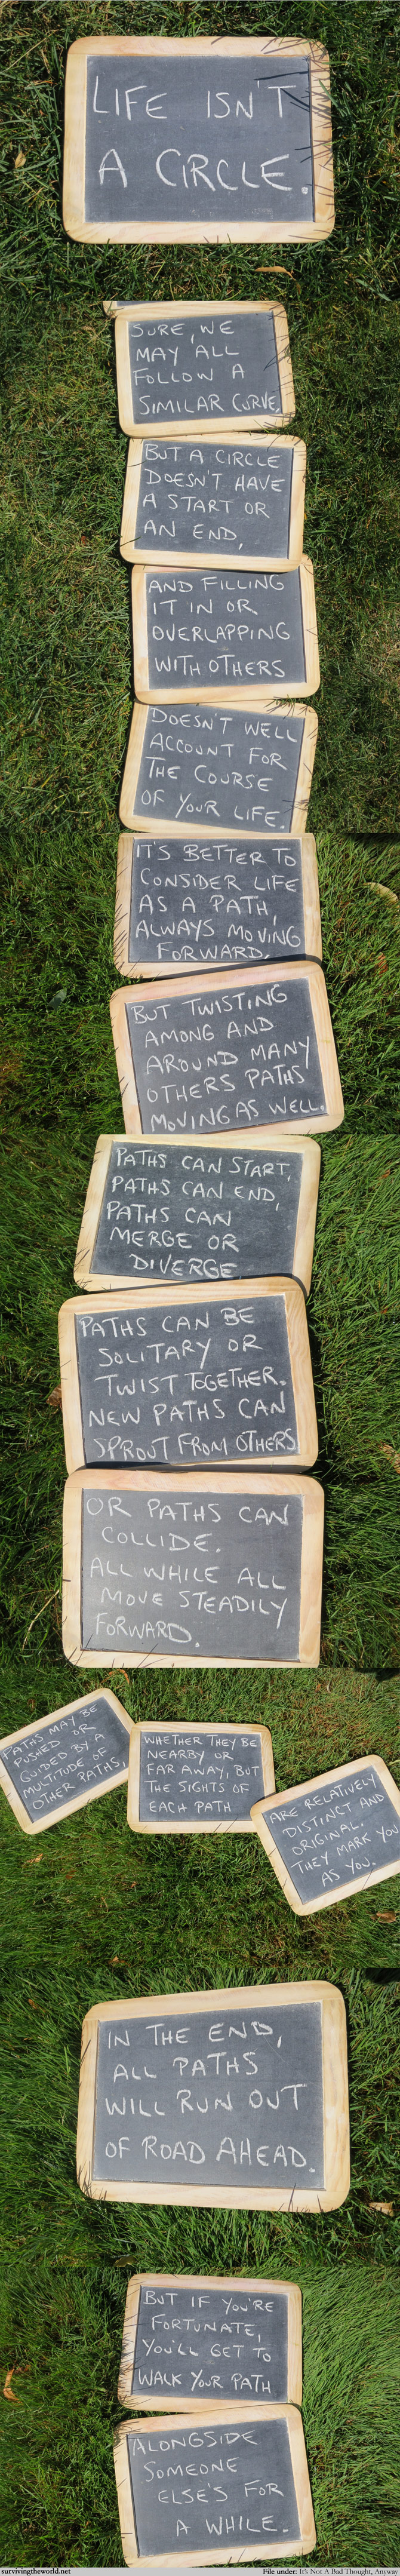 LIFE ISN'T
A CIRCLE.
SURE, WE
MAY ALL
FOLLOW A
SIMILAR CURVE,
BUT A CIRCLE
DOESN'T HAVE
A START OR
AN END,
AND FILLING
IT IN OR
OVERLAPPING
WITH OTHERS
DOESN'T WELL
ACCOUNT FOR
THE COURSE
OF YOUR LIFE.
IT'S BETTER TO
CONSIDER LIFE
AS A PATH,
ALWAYS MOVING
FORWARD,
BUT TWISTING
AMONG AND
AROUND MANY
OTHERS PATHS
MOVING AS WELL.
PATHS CAN START,
PATHS CAN END,
PATHS CAN
MERGE OR
DIVERGE
PATHS CAN BE
SOLITARY OR
TWIST TOGETHER.
NEW PATHS CAN
SPROUT FROM OTHERS
OR PATHS CAN
COLLIDE.
ALL WHILE ALL
MOVE STEADILY
FORWARD.
PATHS MAY BE
PUSHED OR
GUIDED BY A
MULTITUDE OF
OTHER PATHS,
WHETHER THEY BE
NEARBY OR
FAR AWAY, BUT
THE SIGHTS OF
EACH PATH
ARE RELATIVELY
DISTINCT AND
ORIGINAL.
THEY MARK YOU
AS YOU.
IN THE END,
ALL PATHS
WILL RUN OUT
OF ROAD AHEAD.
BUT IF YOU'RE
FORTUNATE,
YOU'LL GET TO
WALK YOUR PATH
ALONGSIDE
SOMEONE
ELSE'S FOR
A WHILE.
survivingtheworld.net
File under: It's Not A Bad Thought, Anyway